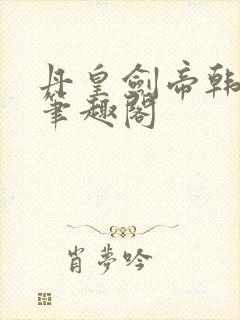 丹皇劍帝韩
筆趣閣
肖夢吟